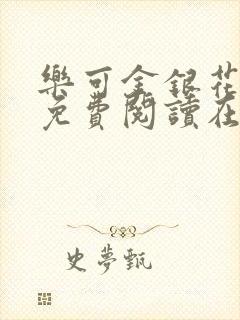 樂可金銀花
免費閱讀在
史夢甄